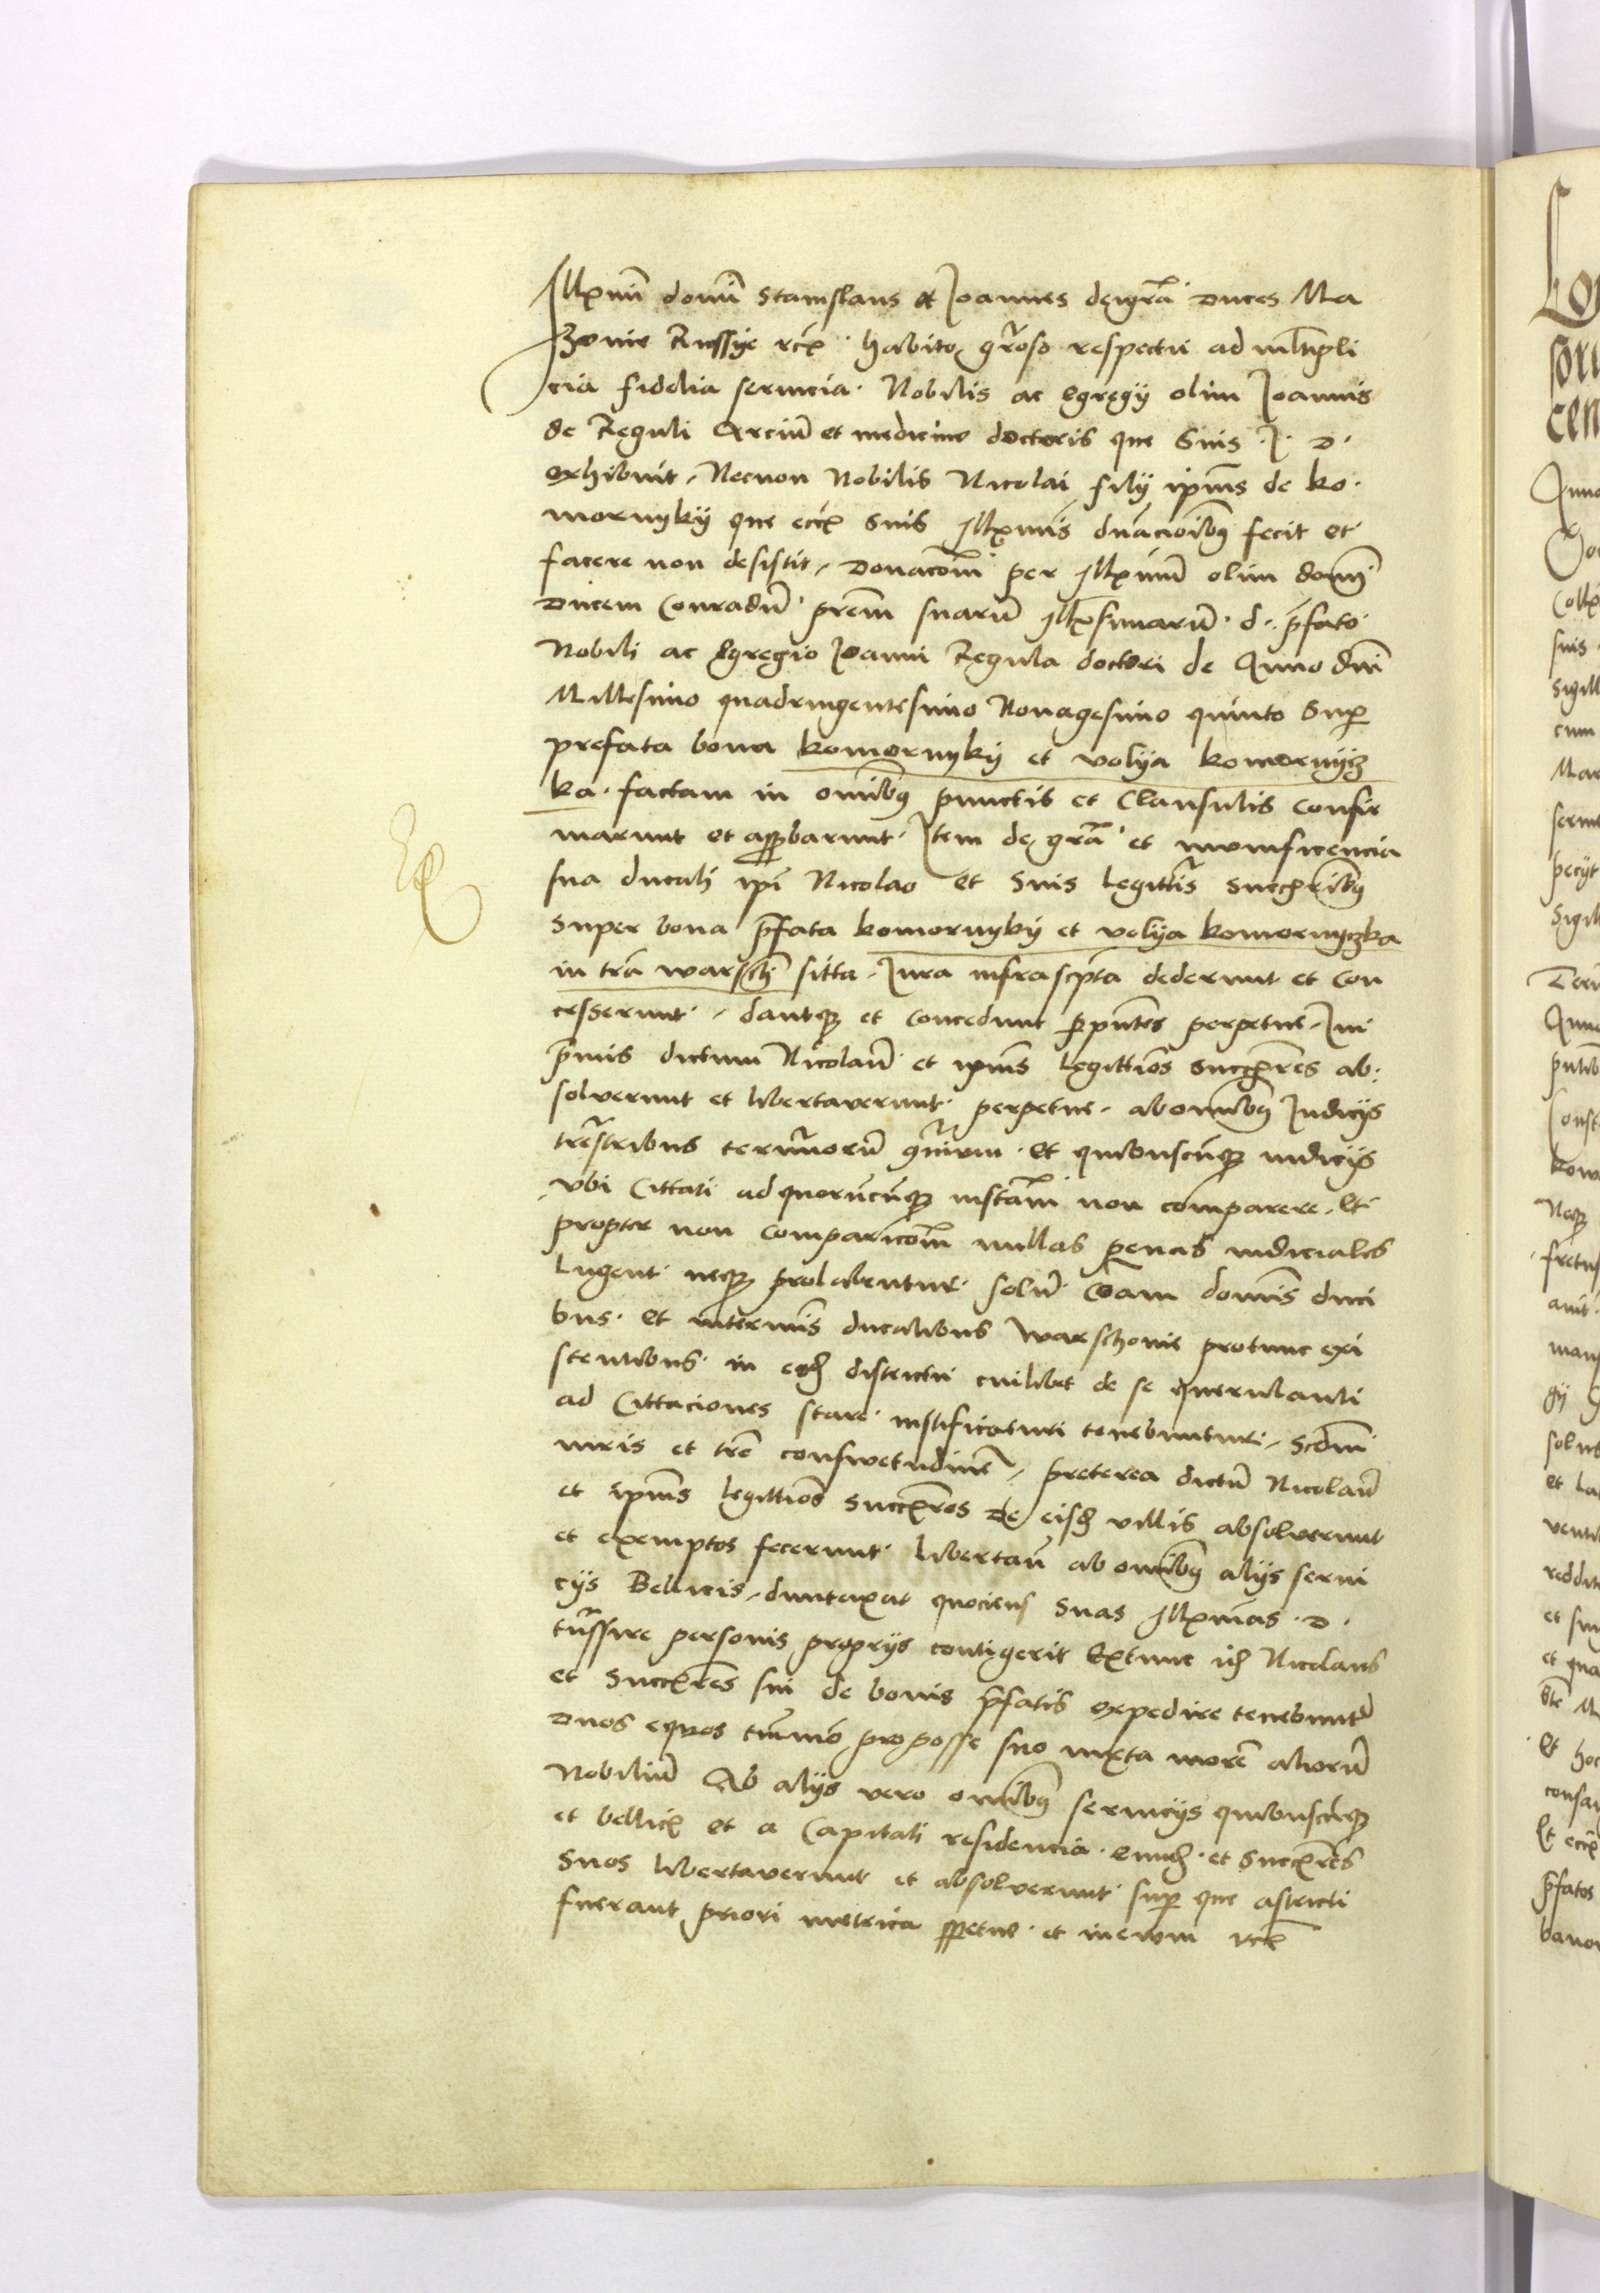 Illxmi domi Stanislaus et Joannes dei gra Duces Ma
zovie Russye rcx habito groso respectu ad multipli
cia fidelia servicia Nobilis ac egregy olim Joannis
de Reguli Arciu et medicine doctoris que Suis I D
exhibuit Necnon Nobilis Nicolai fily ipius de Ko
mornyky que eciam suis Illxmis dnacioibus fecit et
facere non desistit Donacom per Illxmu olim domi
Ducem Conradu prem suaru Illxsimaru d pfato
Nobili ac Egregio Joanni Regula doctori de Anno dni
Millesimo quadringentesimo Nonagesimo quinto Sup
prefata bona Komornyky et volya Komornycz
ka factam in omibus punctis et Clausulis confir
marunt et approbarunt Item de gra et munificencia
sua ducali ipi Nicolao et Suis legittis successoribus
Super bona pfata Komornyky et volya Komornyczka
in tra warsch sitta Jura infrascpta dederunt et con
cesserunt dantque et concedunt p pntes perpetue In
pmis dictum Nicolau et ipius legittios succxres ab
solverunt et libertaverunt perpetue ab omibus Judicys
trestribus terminoru quorum et quibuscunque iudicys
ubi Cittati ad quorucunque instam non comparere et
propter non comparicom nullas penas iudiciales
lugent neque prolabentur solu Coram domis duci
bus et in termis ducalibus Warschovie protunc exi
stentibus in eod districtu cuilibet de se querulanti
ad Cittaciones stare iustificaturi tenebuntur Scdm
iuris et tre consvetudine preterea dictu Nicolau
et ipius legittios succxres De eisd villis absolverunt
et exemptos fecerunt libertau ab omibus alys servi
cys Bellicis duntaxat quociens Suas Illxmas D
trassire personis proprys contigerit Extunc id Nicolaus
et Succxres sui de bonis pfatis expedire tenebuntur
Duos equos tmmo pro posse suo iuxta more alioru
Nobiliu Ab alys vero omibus servicys quibuscuque
et bellicx et a Capitali residencia eund et succxres
Suos libertaverunt et absolverunt sup que astricti
fuerant priori metrica ppetue et in evum rcx